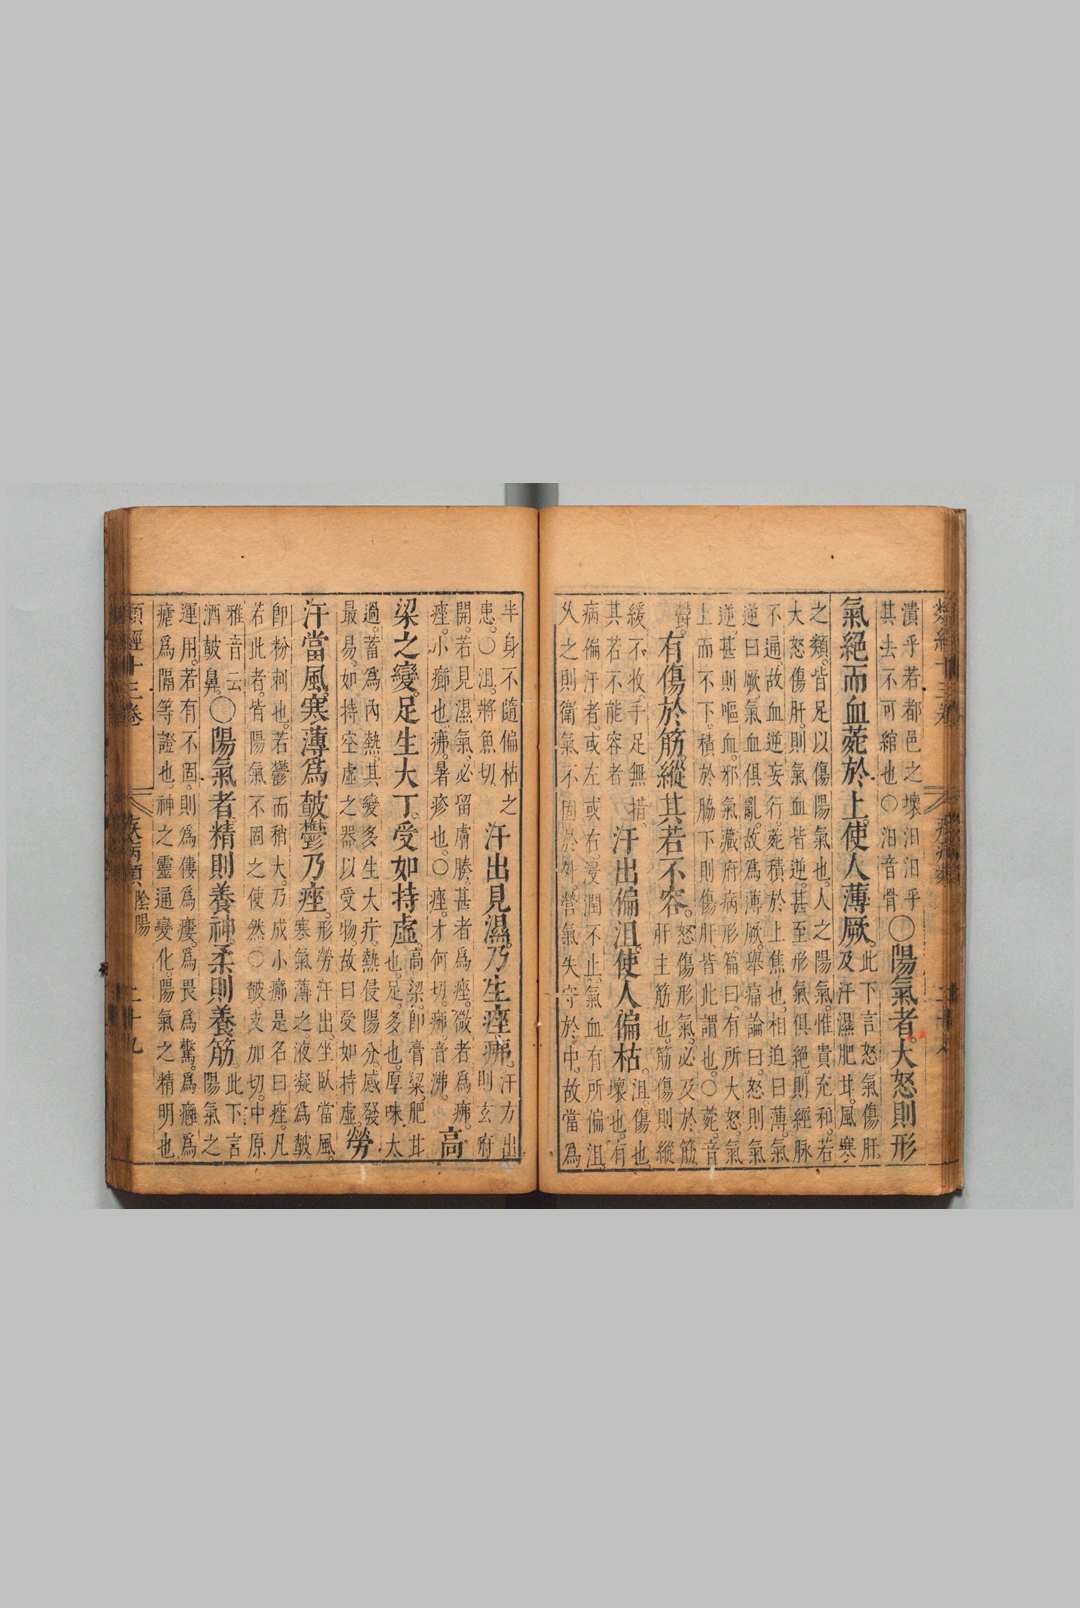 潰乎若都邑之壞汩汩乎
其去不可綰也○汩音骨
○陽氣者大怒則形
氣絕而血菀於上使人薄厥
此下言怒氣傷肝
及汗濕肥甘風寒
之類皆足以傷陽氣也人之陽氣惟貴充和若
大怒傷肝則氣血皆逆甚至形氣俱絕則經脉
不通故血逆妄行菀積於上焦也相迫曰薄氣
逆曰厥氣血俱亂故為薄厥舉痛論曰怒則氣
逆甚則嘔血邪氣藏府病形篇曰有所大怒氣
上而不下積於脇下則傷肝皆此謂也○菀音
鬱
有傷於筋縱其若不容
怒傷形氣必及於筋
肝主筋也筋傷則縱
緩不收手足無措
其若不能容者
汗出偏沮使人偏枯
沮傷也
壞也有
病偏汗者或左或右浸潤不止氣血有所偏沮
久之則衛氣不固於外營氣失守於中故當為
半身不隨偏枯之
患○沮將魚切
汗出見濕乃生痤疿
汗方出
則玄府
開若見濕氣必留膚腠甚者為痤微者為疿
痤小癤也疿暑疹也○痤才何切疿音沸
高
梁之變足生大丁受如持虛
高梁即膏粱肥甘
也足多也厚味太
過蓄為內熱其變多生大疔熱侵陽分感發
最易如持空虛之器以受物故曰受如持虛
勞
汗當風寒薄為皶鬱乃痤
形勞汗出坐臥當風
寒氣薄之液凝為皶
即粉刺也若鬱而稍大乃成小癤是名曰痤凡
若此者皆陽氣不固之使然○皶支加切中原
雅音云
酒皶鼻
○陽氣者精則養神柔則養筋
此下言
陽氣之
運用若有不固則為僂為瘻為畏為驚為癰為
瘧為隔等證也神之靈通變化陽氣之精明也
類經十三卷
疾病類 陰陽
二十九